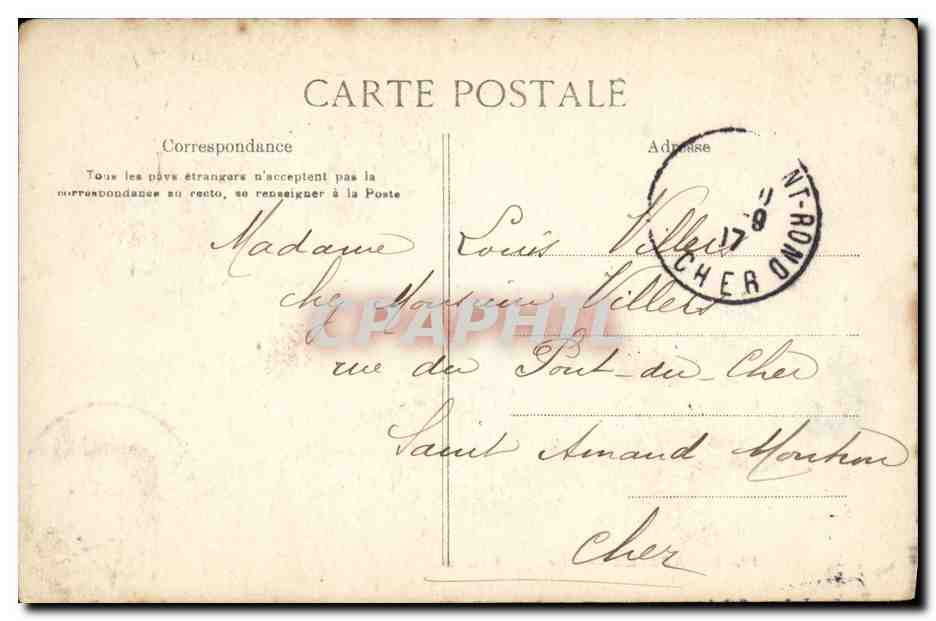 CARTE POSTALE
Correspondance
Adresse
Tous les pays étrangers n'acceptent pas la
correspondance au recto, se renseigner à la Poste
NT-ROND
CHER
11
9
17
Madame Louis Villers
chez Monsieur Villers
CPAPHIL
rue du Pont-du-Cher
Saint Amand Montron
Cher